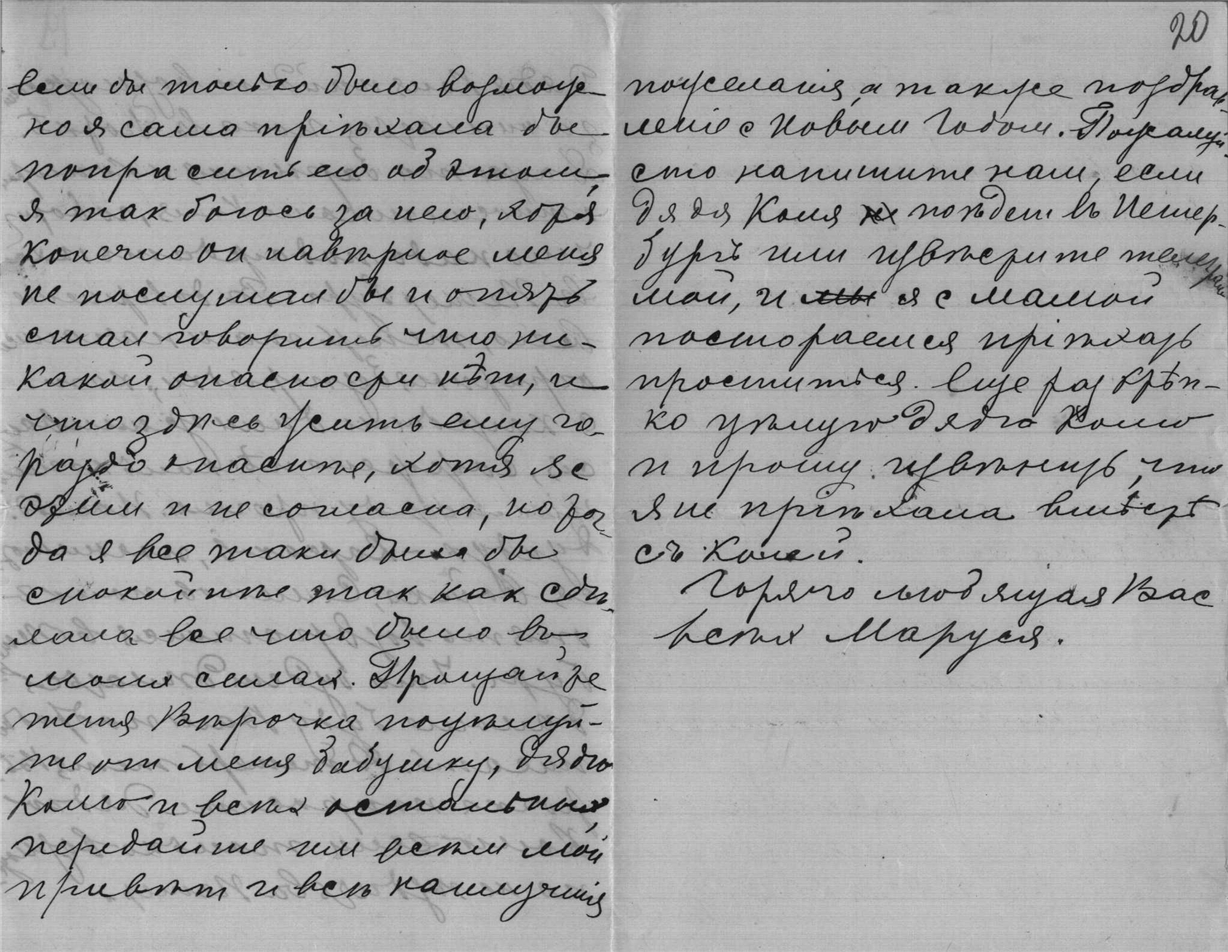 если бы только было возмож-
но я сама пріѣхала бы
попросить его об этом,
я так боюсь за него, хотя
конечно он навѣрное меня
не послушал бы и опять
стал говорить что ни-
какой опасности нѣт, и
что здѣсь жить ему го-
раздо опаснѣе, хотя я с
этим и не согласна, но тог-
да я все таки была бы
спокойнѣе так как сдѣ-
лала все что было в
моих силах. Прощайте
тетя Вѣрочка поцѣлуй-
те от меня бабушку, дядю
Колю и всѣх остальных,
передайте им всѣм мой
привѣт и всѣ наилучшія
20
пожеланія, а также поздрав
леніе с Новым Годом. Пожалуй-
сто напишите нам, если
дядя Коля поѣдет въ Петер-
бургъ или извѣстите телеграм
мой, и мы я с мамой
постораемся пріѣхать
проститься. Еще раз крѣп-
ко цѣлую Дядю Колю
и прошу извѣнить, что
я не пріѣхала вмѣстѣ
съ Колей.
Горячо любящая Вас
всѣх Маруся.